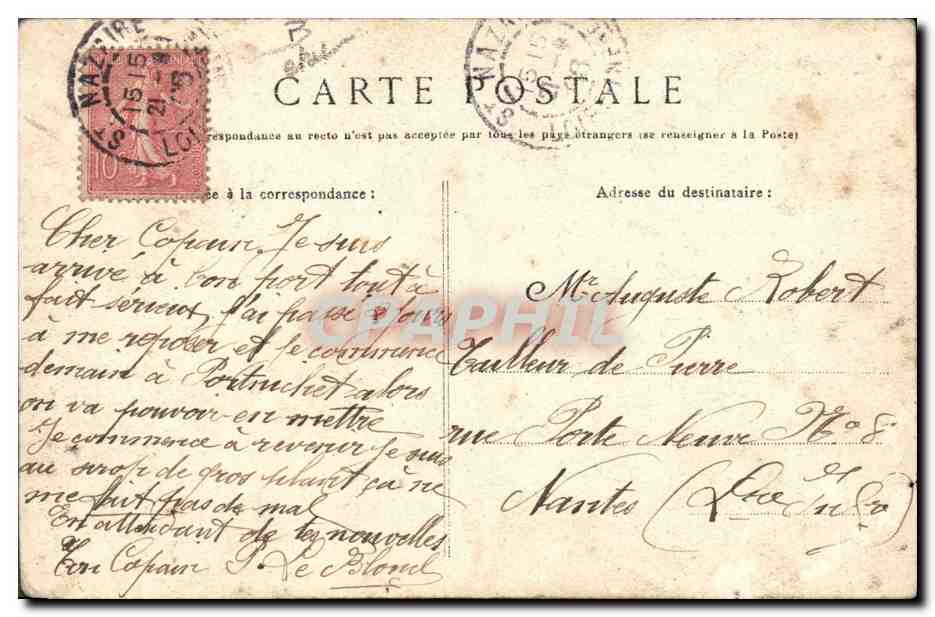 CARTE POSTALE
respondance au recto n'est pas acceptée par tous les pays étrangers (se renseigner à la Poste)
ée à la correspondance :
Cher Copain, Je suis
arrivé à bon port tout à
fait sérieux, j'ai passé 2 jours
à me reposer et je commence
demain à Pornichet alors
on va pouvoir en mettre
Je commence à revenir je suis
au sirop de gros plant ça ne
me fait pas de mal
En attendant de tes nouvelles
Ton Copain P. Le Blond
Adresse du destinataire :
Mr Auguste Robert
Tailleur de Pierre
rue Porte Neuve No 8
Nantes (Loire Infre)
ST NAZAIRE
15-15
21
10
ST NAZ
15-15
CPAPHIL